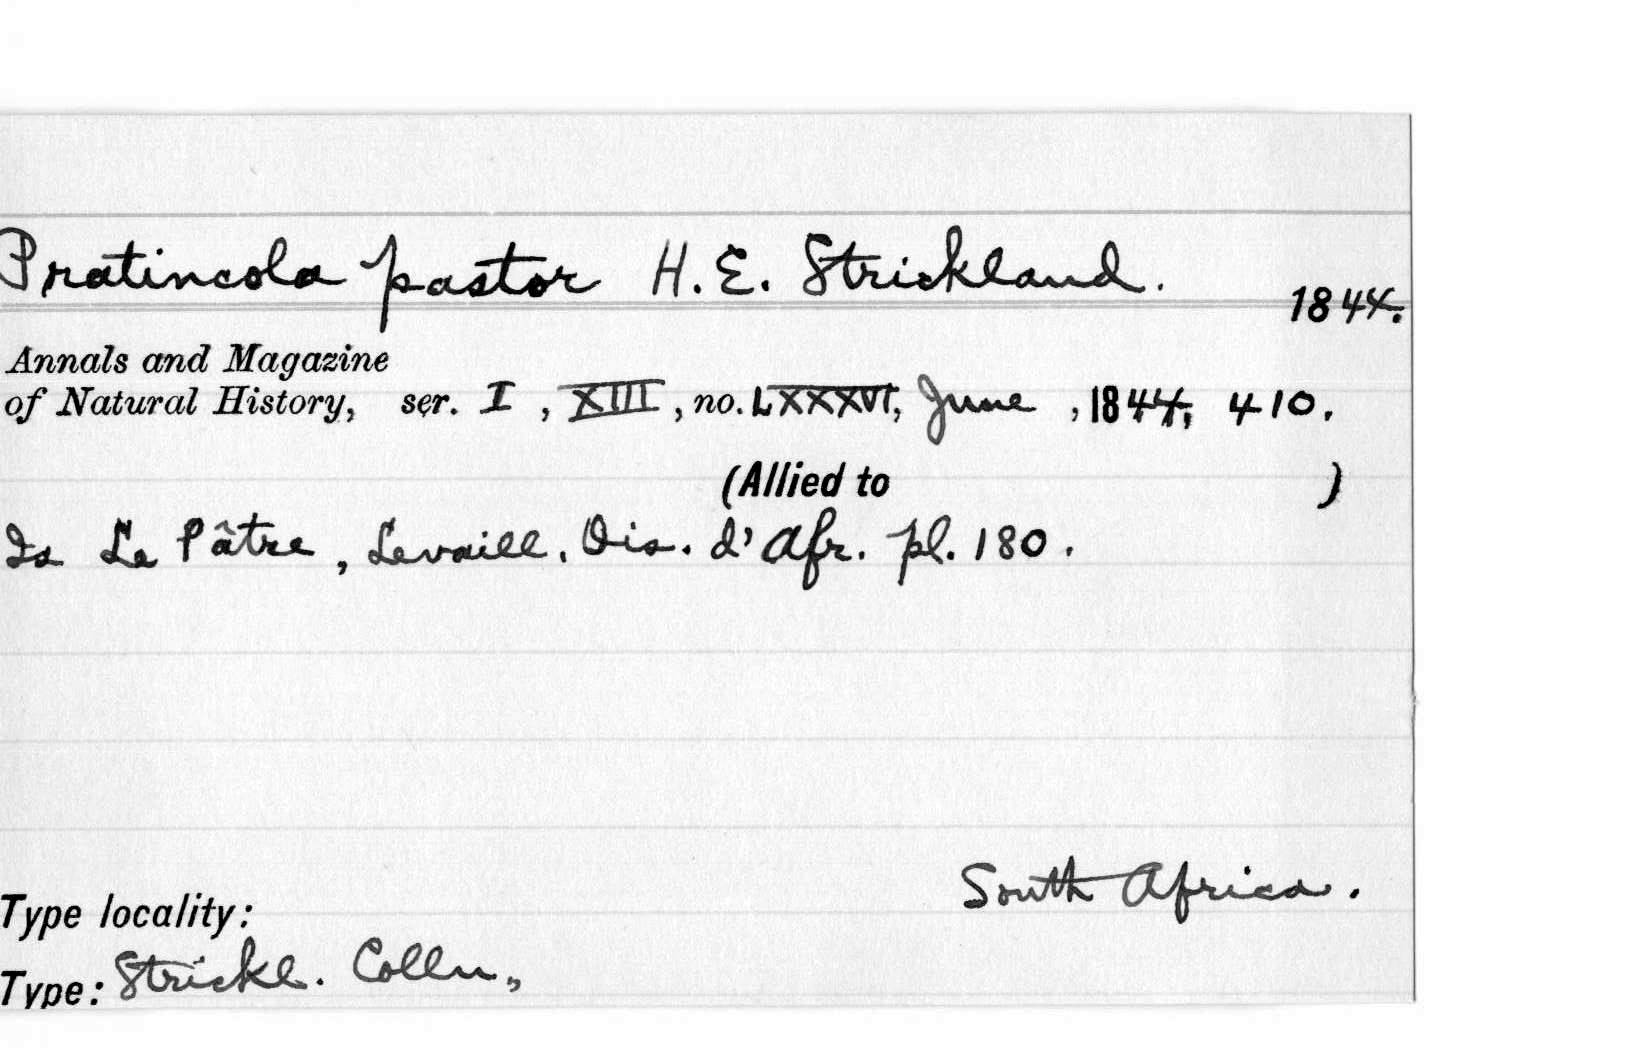 Pratincola pastor H. E. Strickland.
1844.
Annals and Magazine
of Natural History, ser. I, XIII, no. LXXXVI, June, 1844, 410.
(Allied to )
Is Le Pâtre, Levaill. Ois. d'Afr. pl. 180.
South Africa.
Type locality:
Type: Strickl. Colln.,